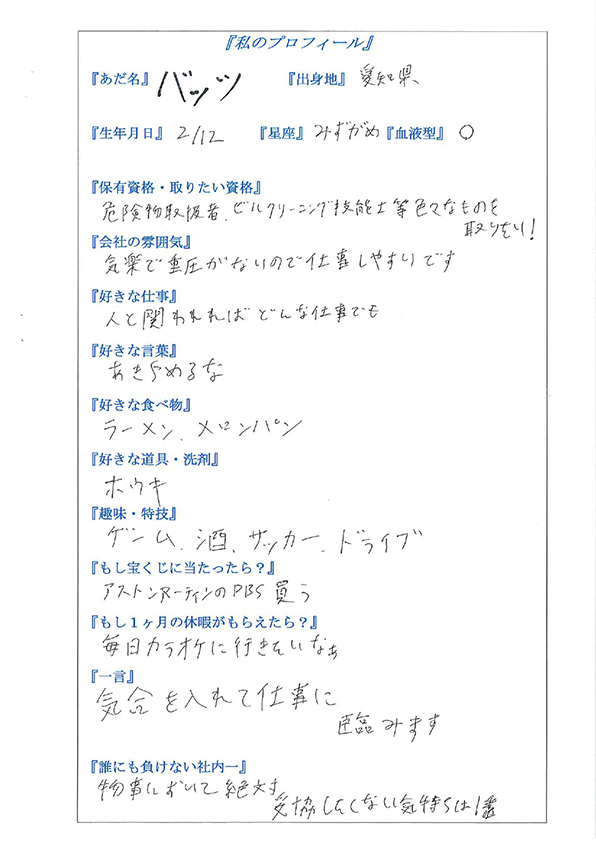 『私のプロフィール』
『あだ名』 バッツ 『出身地』 愛知県、
『生年月日』 2/12 『星座』 みずがめ 『血液型』 O
『保有資格・取りたい資格』
危険物取扱者、ビルクリーニング技能士等色々なものを
取りたい!
『会社の雰囲気』
気楽で重圧がないので仕事しやすいです
『好きな仕事』
人と関われればどんな仕事でも
『好きな言葉』
あきらめるな
『好きな食べ物』
ラーメン、メロンパン
『好きな道具・洗剤』
ホウキ
『趣味・特技』
ゲーム、酒、サッカー、ドライブ
『もし宝くじに当たったら?』
アストンマーティンのDBS買う
『もし1ヶ月の休暇がもらえたら?』
毎日カラオケに行きたいなぁ
『一言』
気合を入れて仕事に
臨みます
『誰にも負けない社内一』
物事において絶対
妥協したくない気持ちは1番